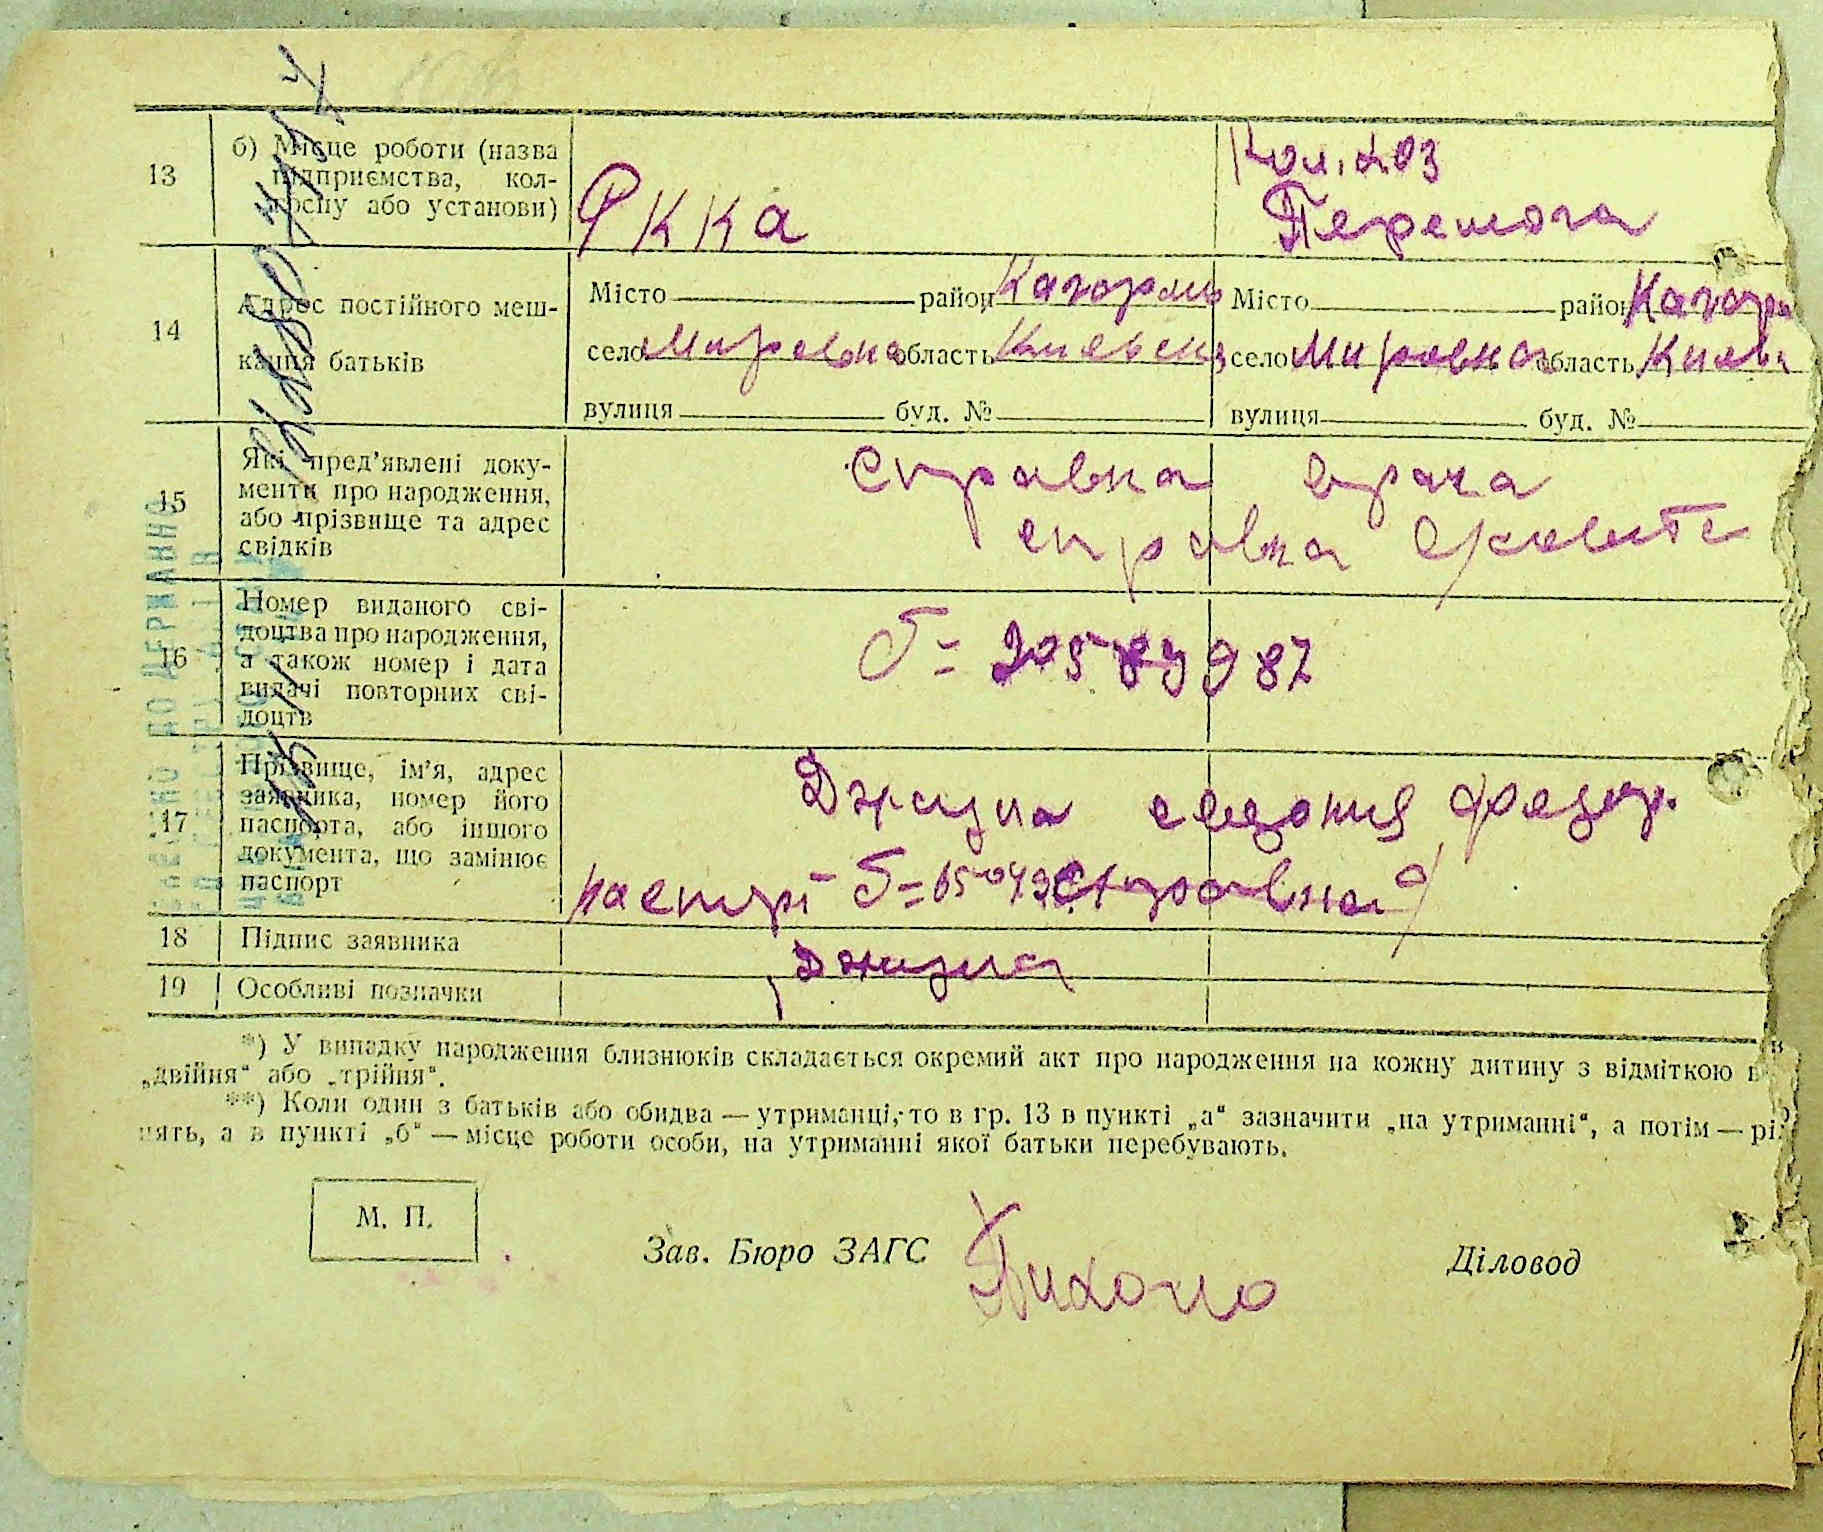 13
б) Місце роботи (назва
підприємства, кол-
госпу або установи)
РККА
Колхоз
Перемога
14
Адрес постійного меш-
кання батьків
Місто район Кагорл
село Мировка область Киевск
вулиця буд. №
Місто район Кагорл
село Мировка область Киев
вулиця буд. №
15
Які пред'явлені доку-
менти про народження,
або прізвище та адрес
свідків
справка врача
справка
16
Номер виданого сві-
доцтва про народження,
а також номер і дата
видачі повторних сві-
доцтв
17
Прізвище, ім'я, адрес
заявника, номер його
паспорта, або іншого
документа, що замінює
паспорт
18
Підпис заявника
19
Особливі позначки
*) У випадку народження близнюків складається окремий акт про народження на кожну дитину з відміткою
„двійня“ або „трійня“.
**) Коли один з батьків або обидва — утриманці, то в гр. 13 в пункті „а“ зазначити „на утриманні“, а потім — рі
нять, а в пункті „б“ — місце роботи особи, на утриманні якої батьки перебувають.
М. П.
Зав. Бюро ЗАГС
Діловод